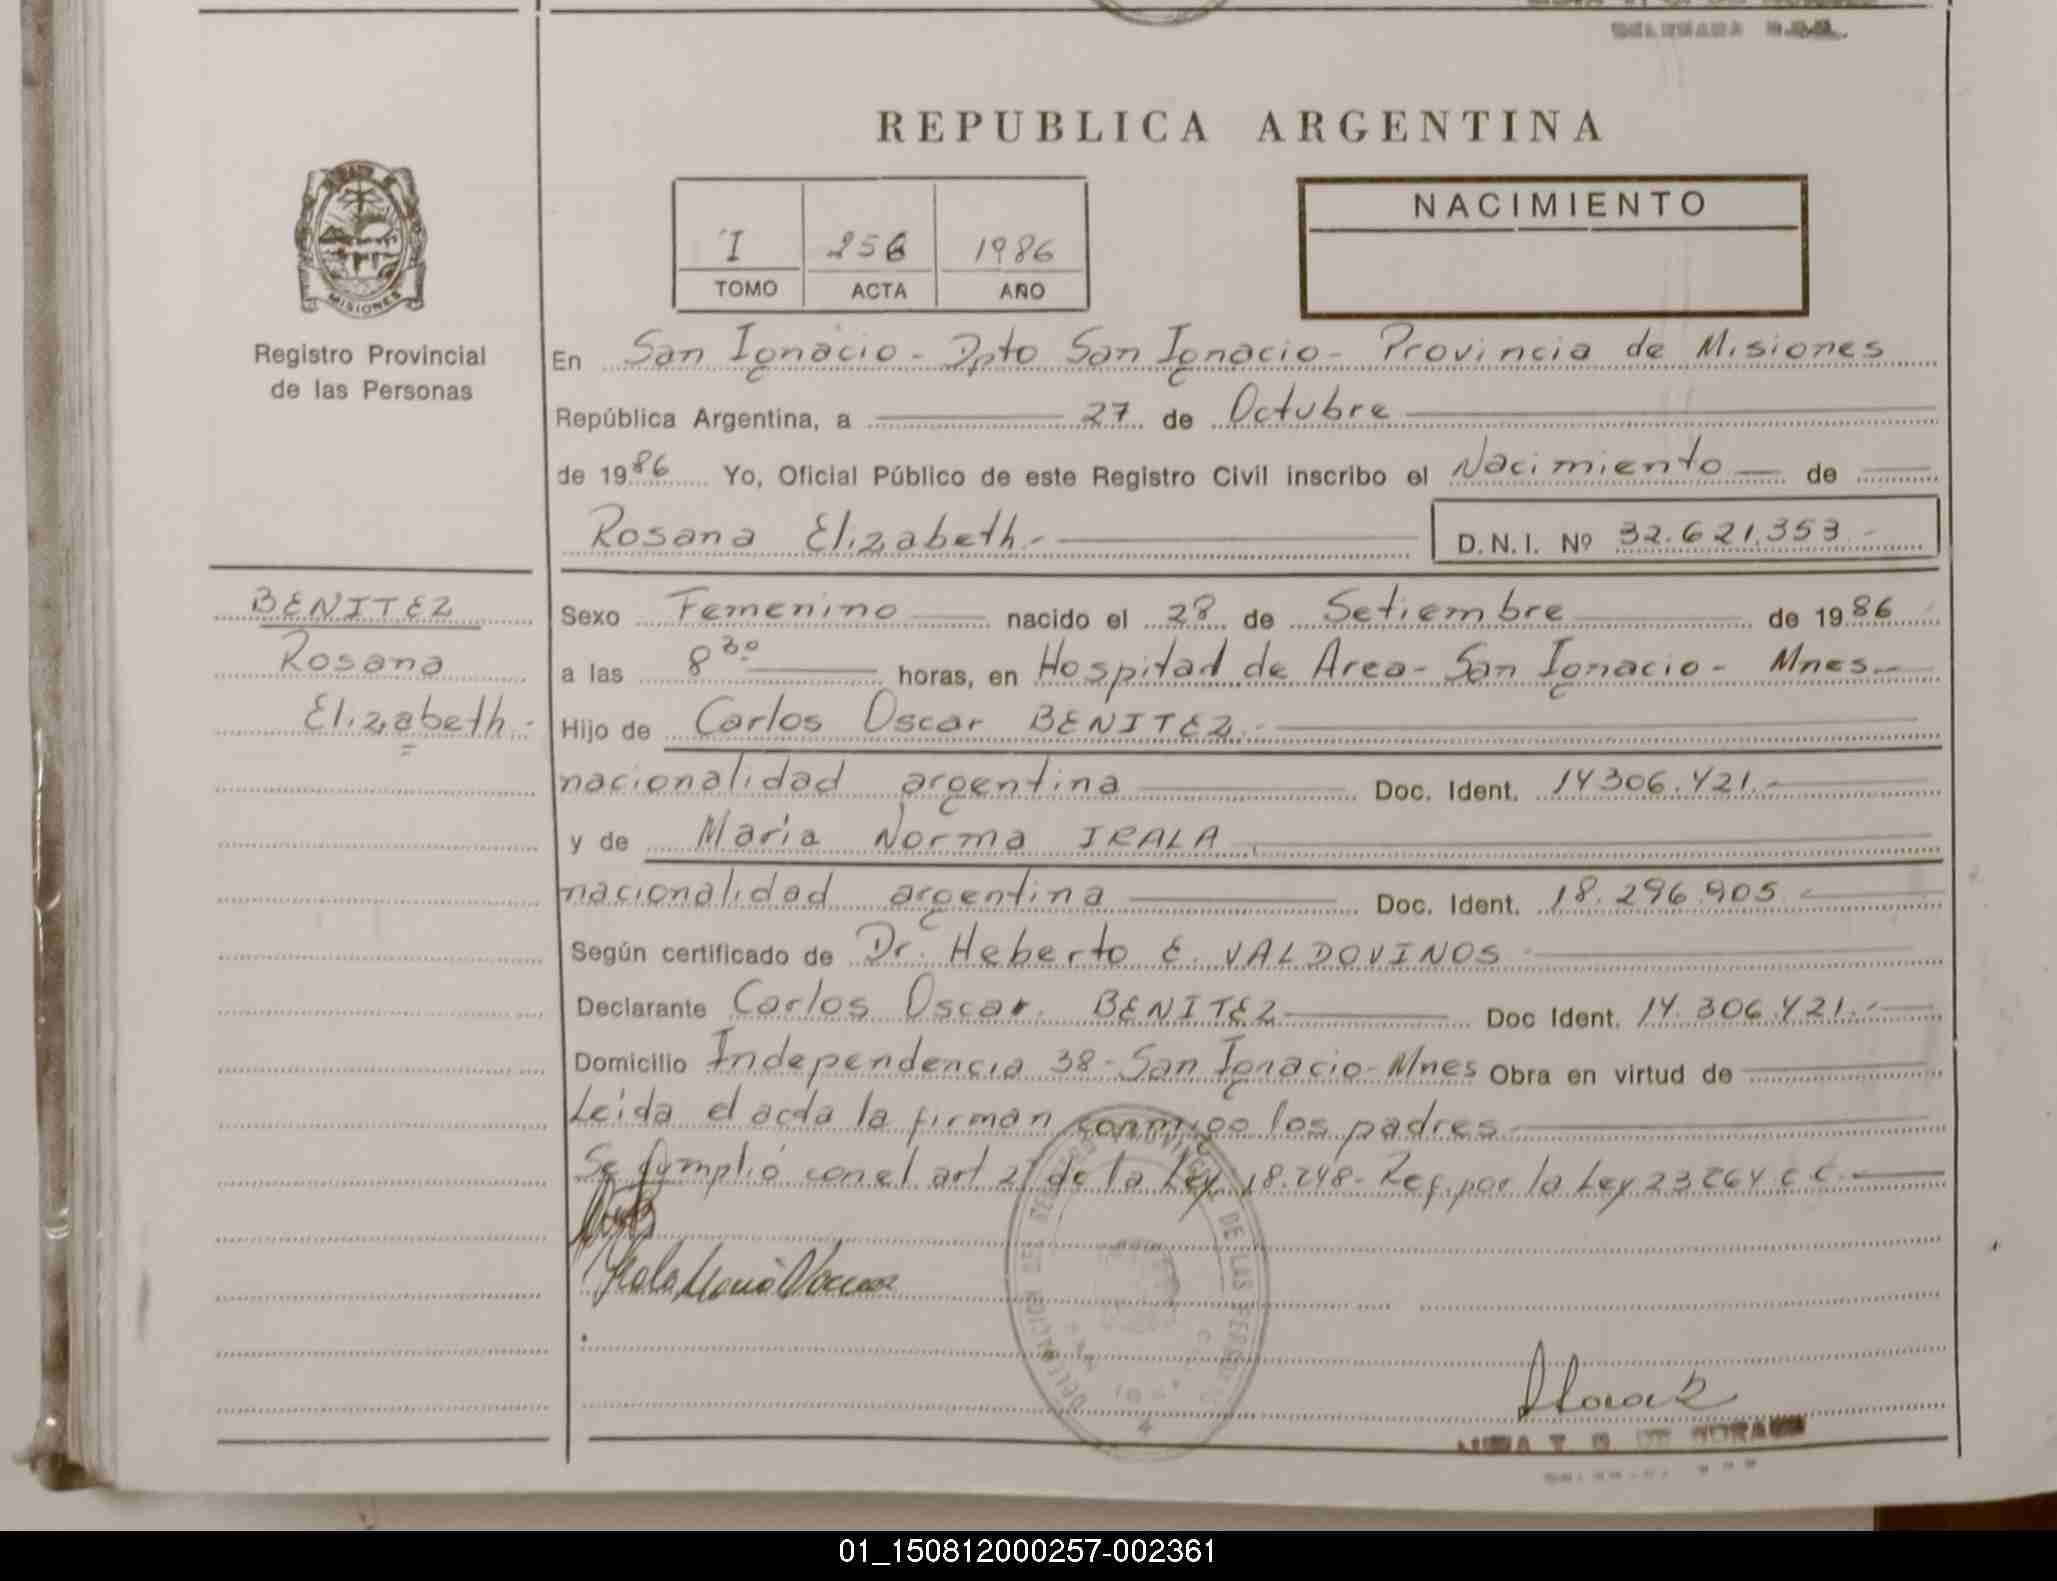 DELEGADA R.P.P.
REPUBLICA ARGENTINA
NACIMIENTO
I 256 1986
TOMO ACTA AÑO
MISIONES
Registro Provincial
de las Personas
En San Ignacio - Dpto San Ignacio - Provincia de Misiones
República Argentina, a 27 de Octubre
de 1986 Yo, Oficial Público de este Registro Civil inscribo el Nacimiento de
Rosana Elizabeth.- D.N.I. Nº 32.621.353.-
BENITEZ
Rosana
Elizabeth.-
Sexo Femenino nacido el 28 de Setiembre de 1986
a las 8 30 horas, en Hospital de Area - San Ignacio - Mnes.-
Hijo de Carlos Oscar BENITEZ.-
nacionalidad argentina Doc. Ident. 14306.421.-
y de Maria Norma IRALA.
nacionalidad argentina Doc. Ident. 18.296.905.-
Según certificado de Dr. Heberto E. VALDOVINOS
Declarante Carlos Oscar BENITEZ Doc Ident. 14.306.421.-
Domicilio Independencia 38 - San Ignacio - Mnes Obra en virtud de
Leida el acta la firman conmigo los padres
Se cumplió con el art 2º de la Ley 18.248 - Ref. por la Ley 23264 C.C.-
Irala Maria Norma
DELEGACION DEL REGISTRO PROVINCIAL DE LAS PERSONAS
01_150812000257-002361